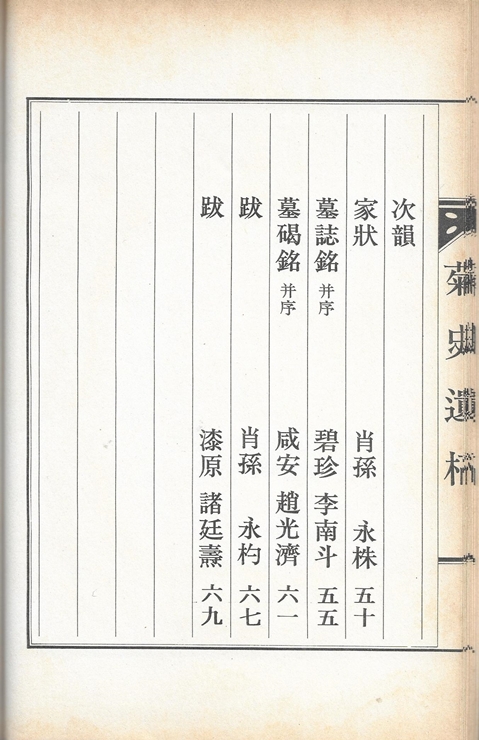 菊史遺稿
次韻
家狀 肖孫 永株 五十
墓誌銘 并序 碧珍 李南斗 五五
墓碣銘 并序 咸安 趙光濟 六一
跋 肖孫 永杓 六七
跋 漆原 諸廷壽 六九